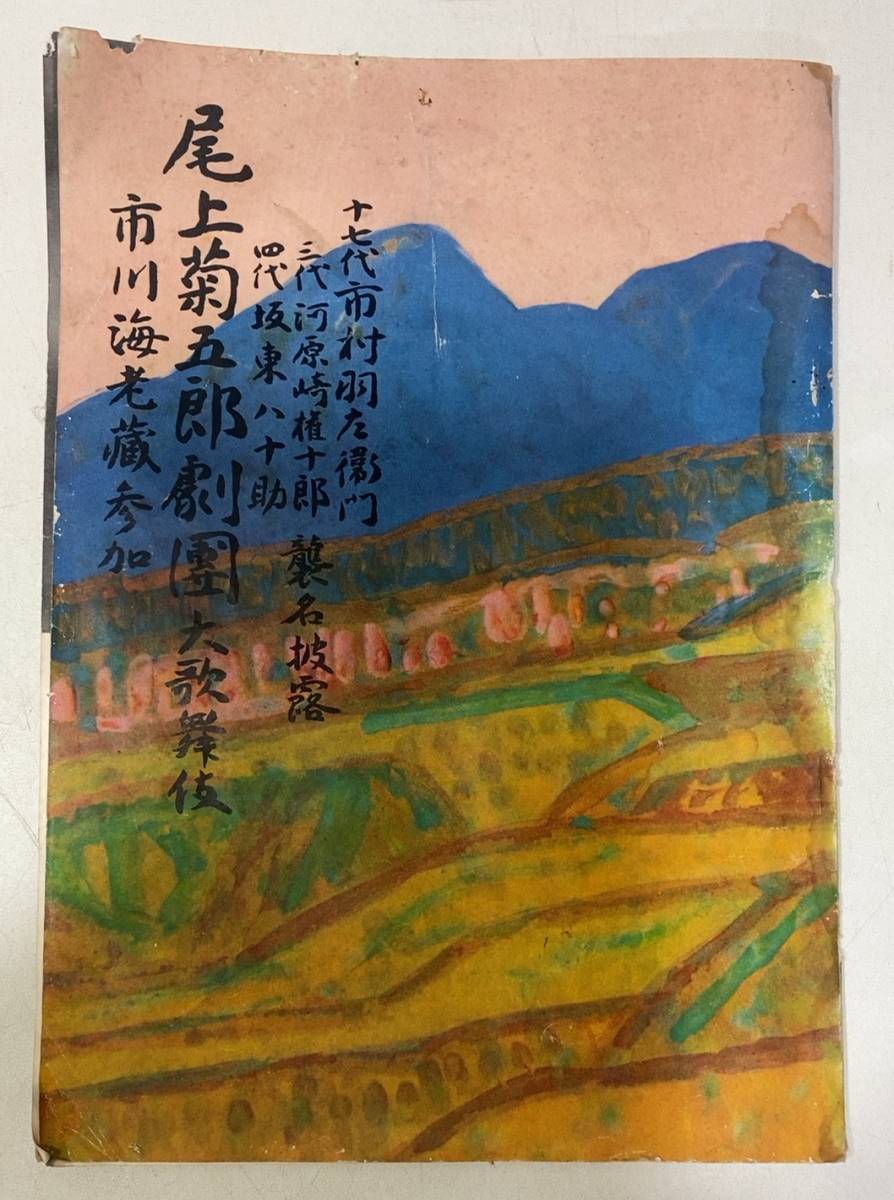 十七代市村羽左衛門
三代河原崎権十郎
四代坂東八十助
襲名披露
尾上菊五郎劇團大歌舞伎
市川海老蔵参加